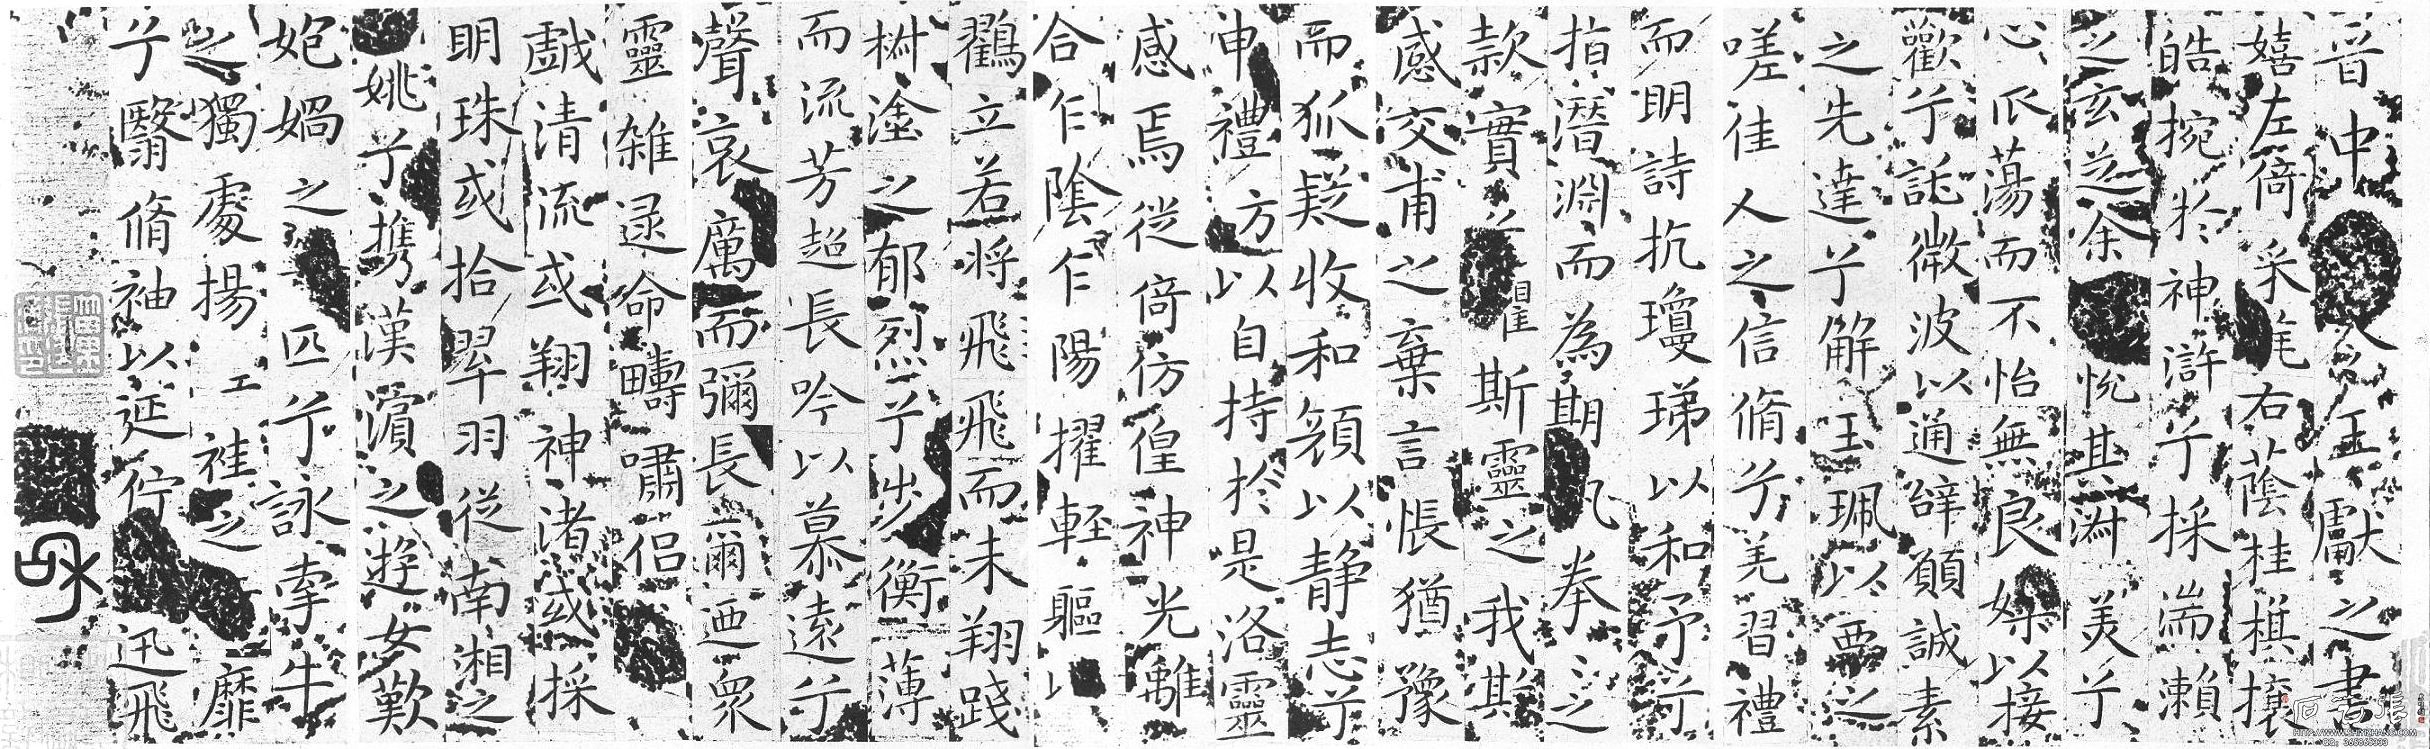 晉中令王獻之書
嬉左倚采旄右蔭桂棋攘
皓捥於神滸兮採湍瀨
之玄芝余悅其淑美兮
心蕩而不怡無良媒以接
歡兮託微波以通辭願誠素
之先達兮解玉珮以要之
嗟佳人之信脩兮羌習禮
而明詩抗瓊珶以和予兮
指潛淵而為期拳之
款實懼斯靈之我欺
感交甫之棄言悵猶豫
而狐疑收和顏以静志兮
申禮方以自持於是洛靈
感焉徙倚仿偟神光離
合乍陰乍陽擢輕軀以
鶴立若將飛飛而未翔踐
椒塗之郁烈兮步衡薄
而流芳超長吟以慕遠兮
聲哀厲而彌長爾迺衆
靈雜遝命疇嘯侶
戲清流或翔神渚或採
明珠或拾翠羽從南湘之
姚兮攜漢濱之遊女歎
匏媧之匹兮詠牽牛
之獨處揚袿之靡
兮翳脩袖以延佇迅飛
和